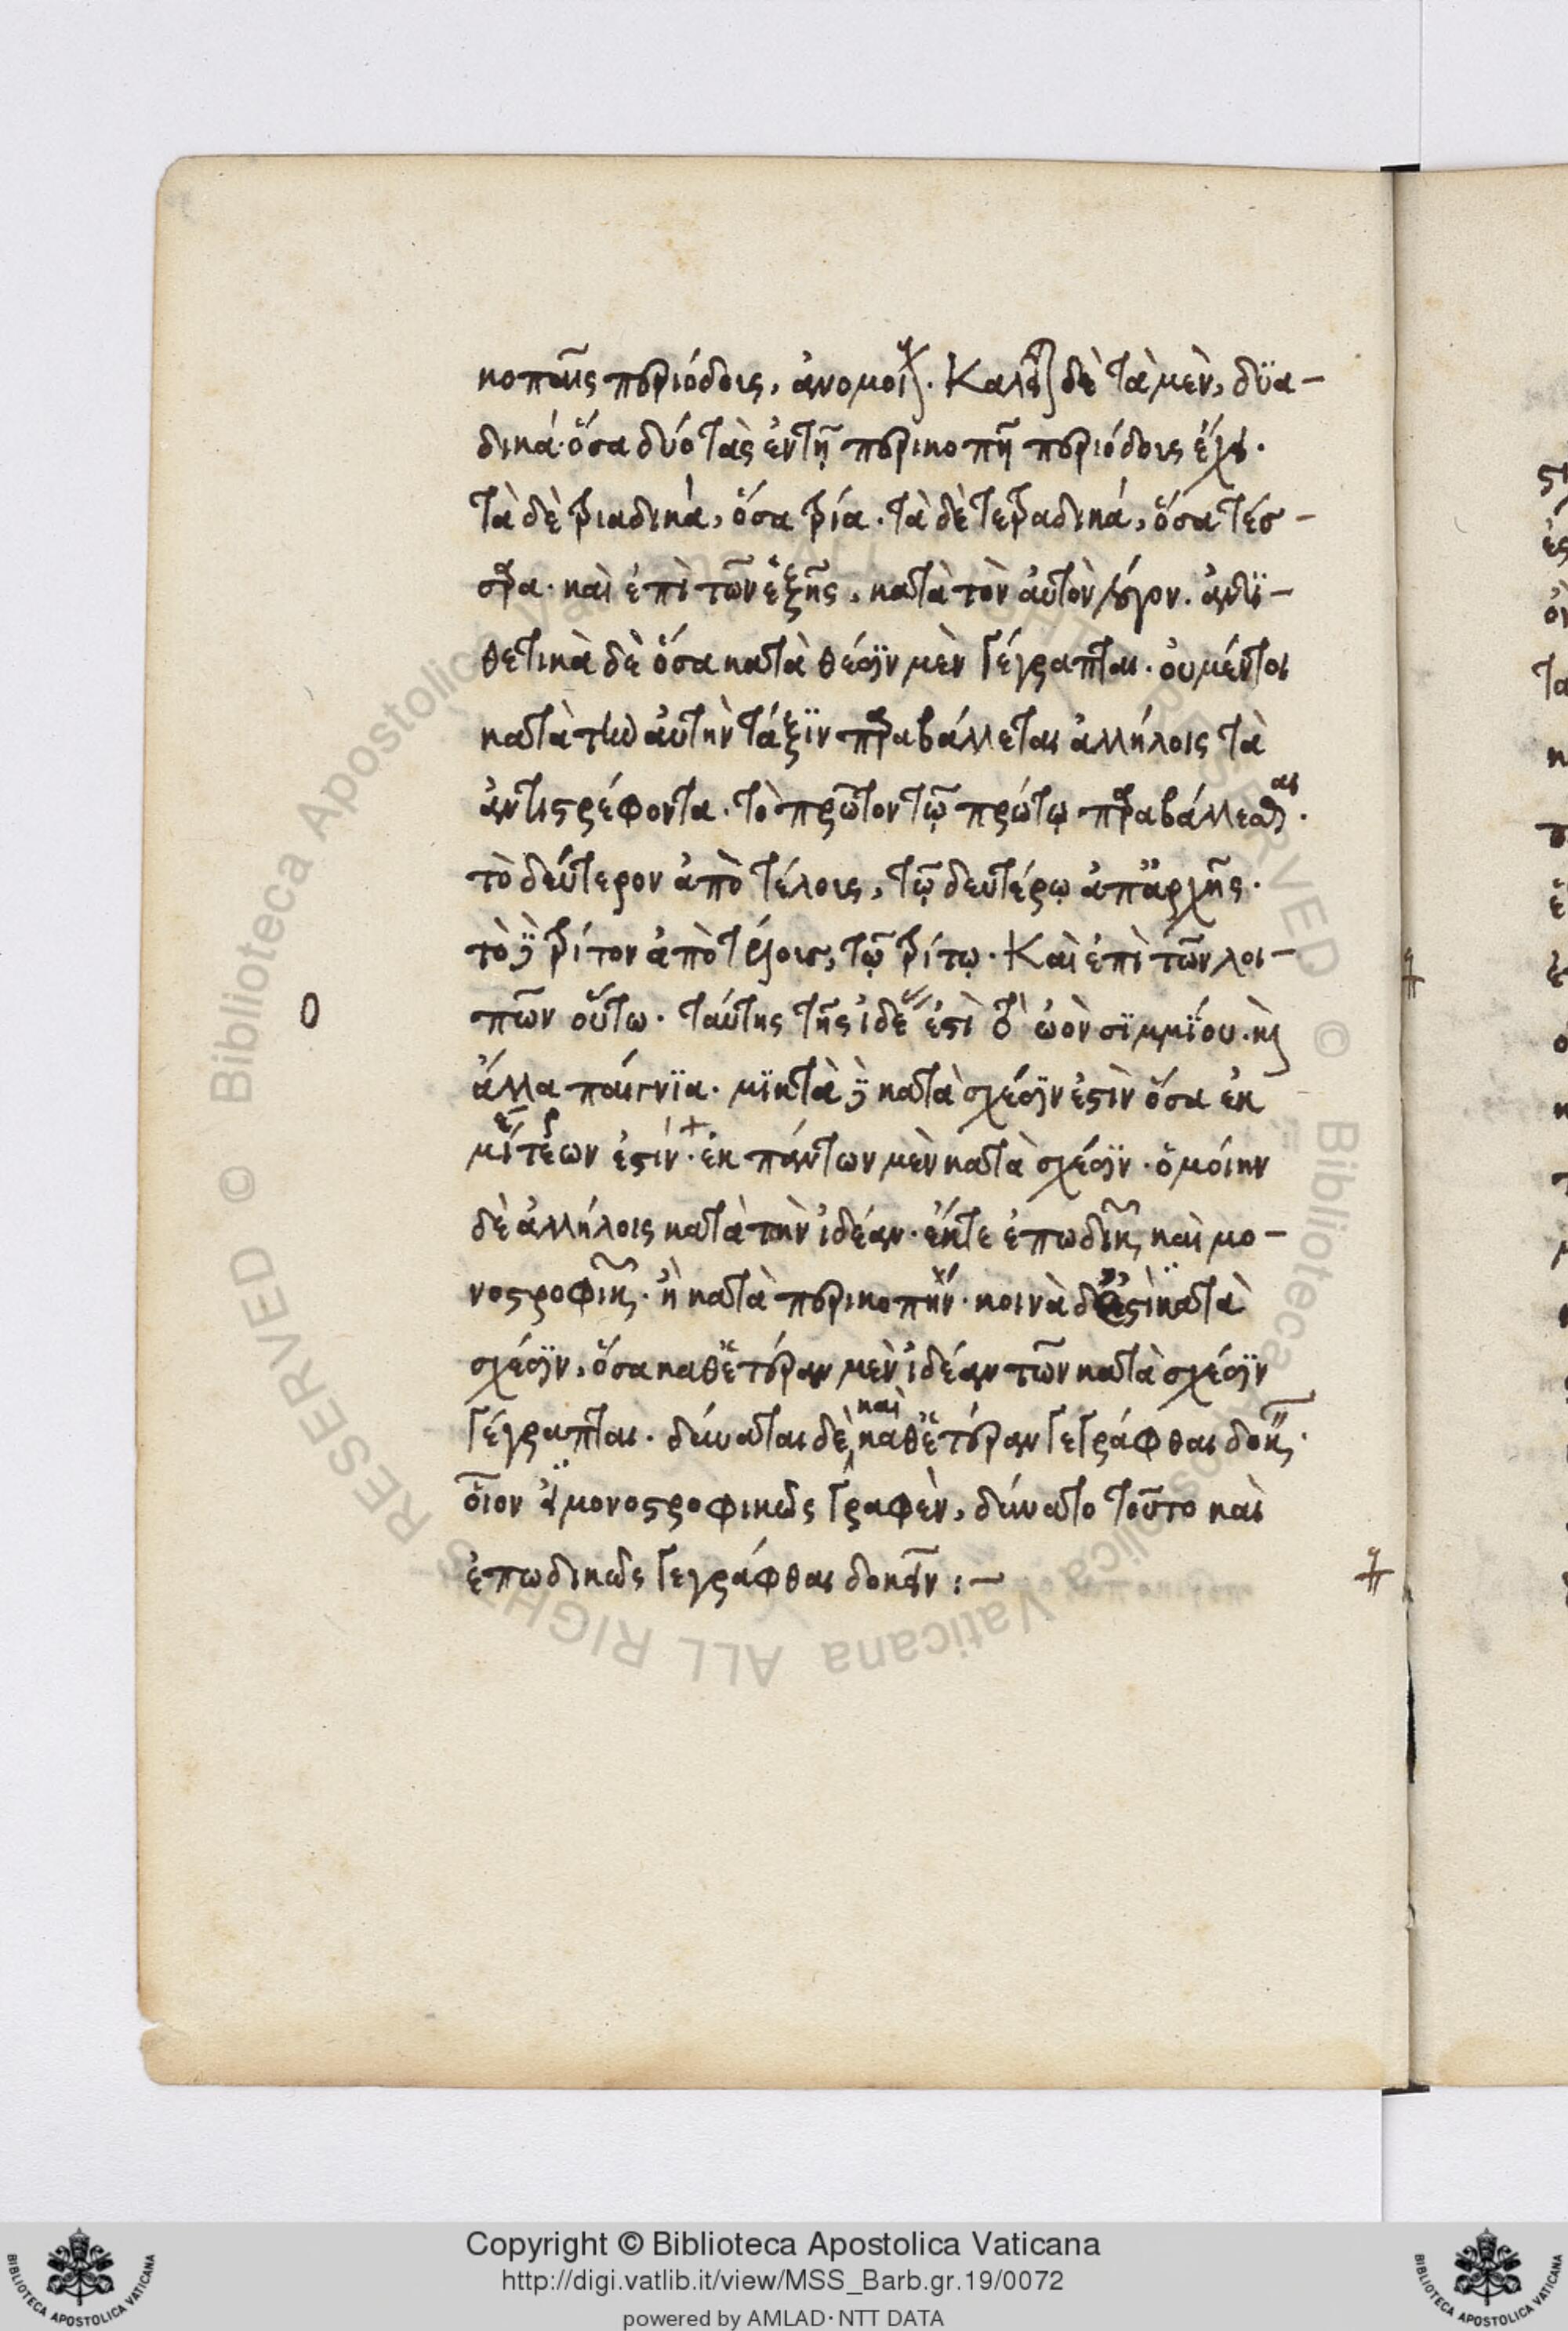 κοπαῖς περιόδοις, ἀνομοίοις. Καλεῖται δὲ τὰ μὲν, δϋα-
δικά· ὅσα δύο τὰς ἐν τῇ περικοπῇ περιόδοις ἔχει.
τὰ δὲ τριαδικά, ὅσα τρία. τὰ δὲ τετραδικά, ὅσα τέσ-
σαρα. καὶ ἐπὶ τῶν ἑξῆς, κατὰ τὸν αὐτὸν λόγον. ἀντϊ-
θετικὰ δὲ ὅσα κατὰ θέσϊν μὲν γέγραπται. οὐ μέντοι
κατὰ τὴν αὐτὴν τάξϊν παραβάλλεται ἀλλήλοις τὰ
ἀντιστρέφοντα. τὸ πρῶτον τῷ πρώτῳ παραβάλλεσθαι.
τὸ δεύτερον ἀπὸ τέλους, τῷ δευτέρῳ ἀπ ἀρχῆς.
τὸ δὲ τρίτον ἀπὸ τέλους, τῷ τρίτῳ. Καὶ ἐπὶ τῶν λοι-
πῶν οὕτω. ταύτης τῆς ἰδέας ἐστὶ τὸ ὠὸν σϊμμϊου. καὶ
ἄλλα παίγνϊα. μϊκτὰ δὲ κατὰ σχέσϊν ἐστὶν ὅσα ἐκ
ἐστίν· ἐκ πάντων μὲν κατὰ σχέσϊν. ὁμοίην
δὲ ἀλλήλοις κατὰ τὴν ἰδέαν. ἔκτε ἐπωδικῶν καὶ μο-
νοστροφικῶν. ἢ κατὰ περικοπήν. κοινὰ δέ ἐστὶ κατὰ
σχέσϊν, ὅσα καθ ἑτέραν μὲν ἰδέαν τῶν κατὰ σχέσϊν
γέγραπται. δύναται δὲ καὶ καθ ἑτέραν γεγράφθαι δοκεῖν.
οἷον ἃ μονοστροφικῶς γραφὲν, δύνατο τοῦτο καὶ
ἐπωδικῶς γεγράφθαι δοκεῖν :-
Copyright © Biblioteca Apostolica Vaticana
http://digi.vatlib.it/view/MSS_Barb.gr.19/0072
powered by AMLAD · NTT DATA